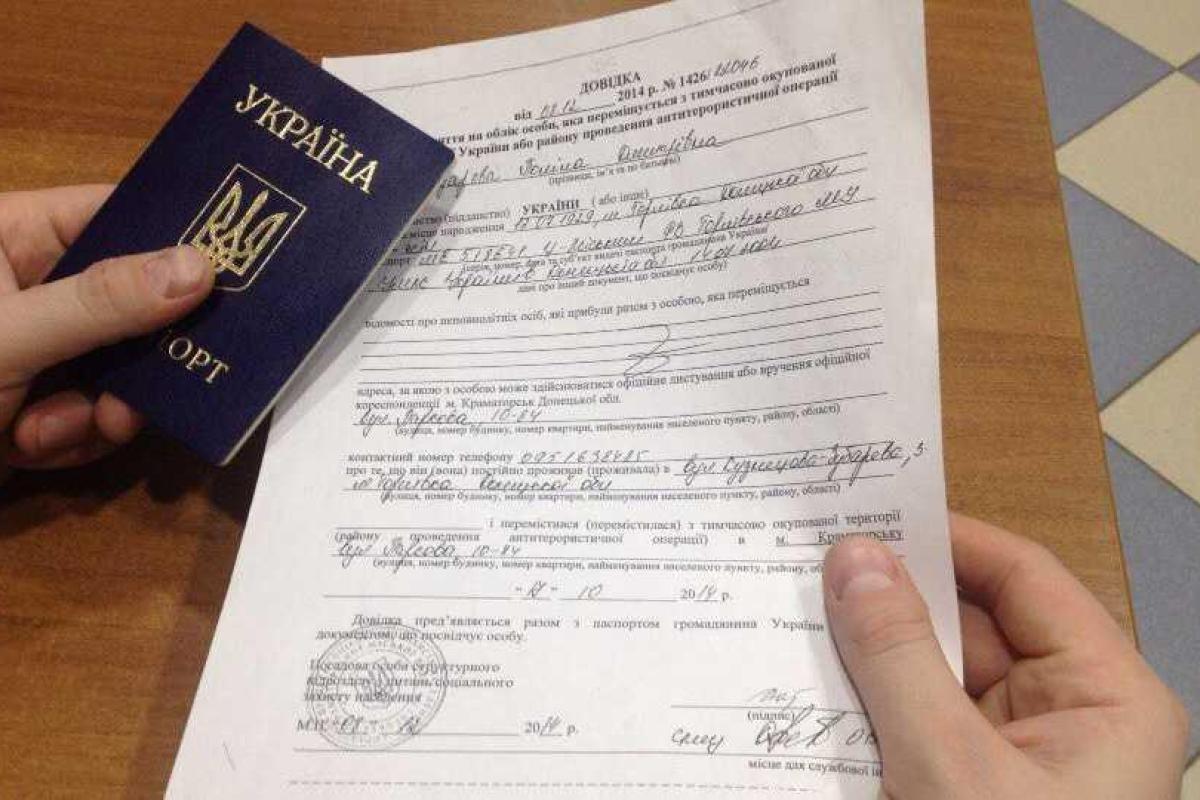 УКРАЇНА
ПОРТ
ДОВІДКА
від 08.12 2014 р. № 1426/
яття на облік особи, яка переміщується з тимчасово окупованої
України або району проведення антитерористичної операції
Поліна Дмитрівна
(прізвище, ім’я та по батькові)
(підданство) УКРАЇНИ ( або інше)
місце народження м. Горлівка Донецької обл
серія, номер, дата та суб’єкт видачі паспорта громадянина України
дані про інший документ, що посвідчує особу)
відомості про неповнолітніх осіб, які прибули разом з особою, яка переміщується
адреса, за якою з особою може здійснюватися офіційне листування або вручення офіційної
кореспонденції м. Краматорськ Донецької обл.
вул. Паркова, 10-84
(вулиця, номер будинку, номер квартири, найменування населеного пункту, району, області)
контактний номер телефону
про те, що він (вона) постійно проживав (проживала) в вул Кузнецова-Зубарева, 3
м Горлівка Донецької обл
(вулиця, номер будинку, номер квартири, найменування населеного пункту, району, області)
і перемістився (перемістилася) з тимчасово окупованої території
(району проведення антитерористичної операції) в м. Краматорську
вул Паркова, 10-84
(вулиця, номер будинку, номер квартири, найменування населеного пункту, району,
10 2014 р.
Довідка пред’являється разом з паспортом громадянина України
документом, що посвідчує особу.
Посадова особа структурного
підрозділу з питань соціального
захисту населення
(підпис)
М.П. 08 12 2014 р.
спец
місце для службової